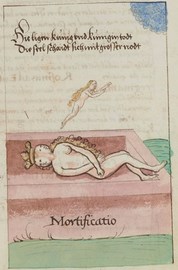 Hie ligen künig und künigin todt
Die seel scheidt sich mit grosser nodt
Mortificatio